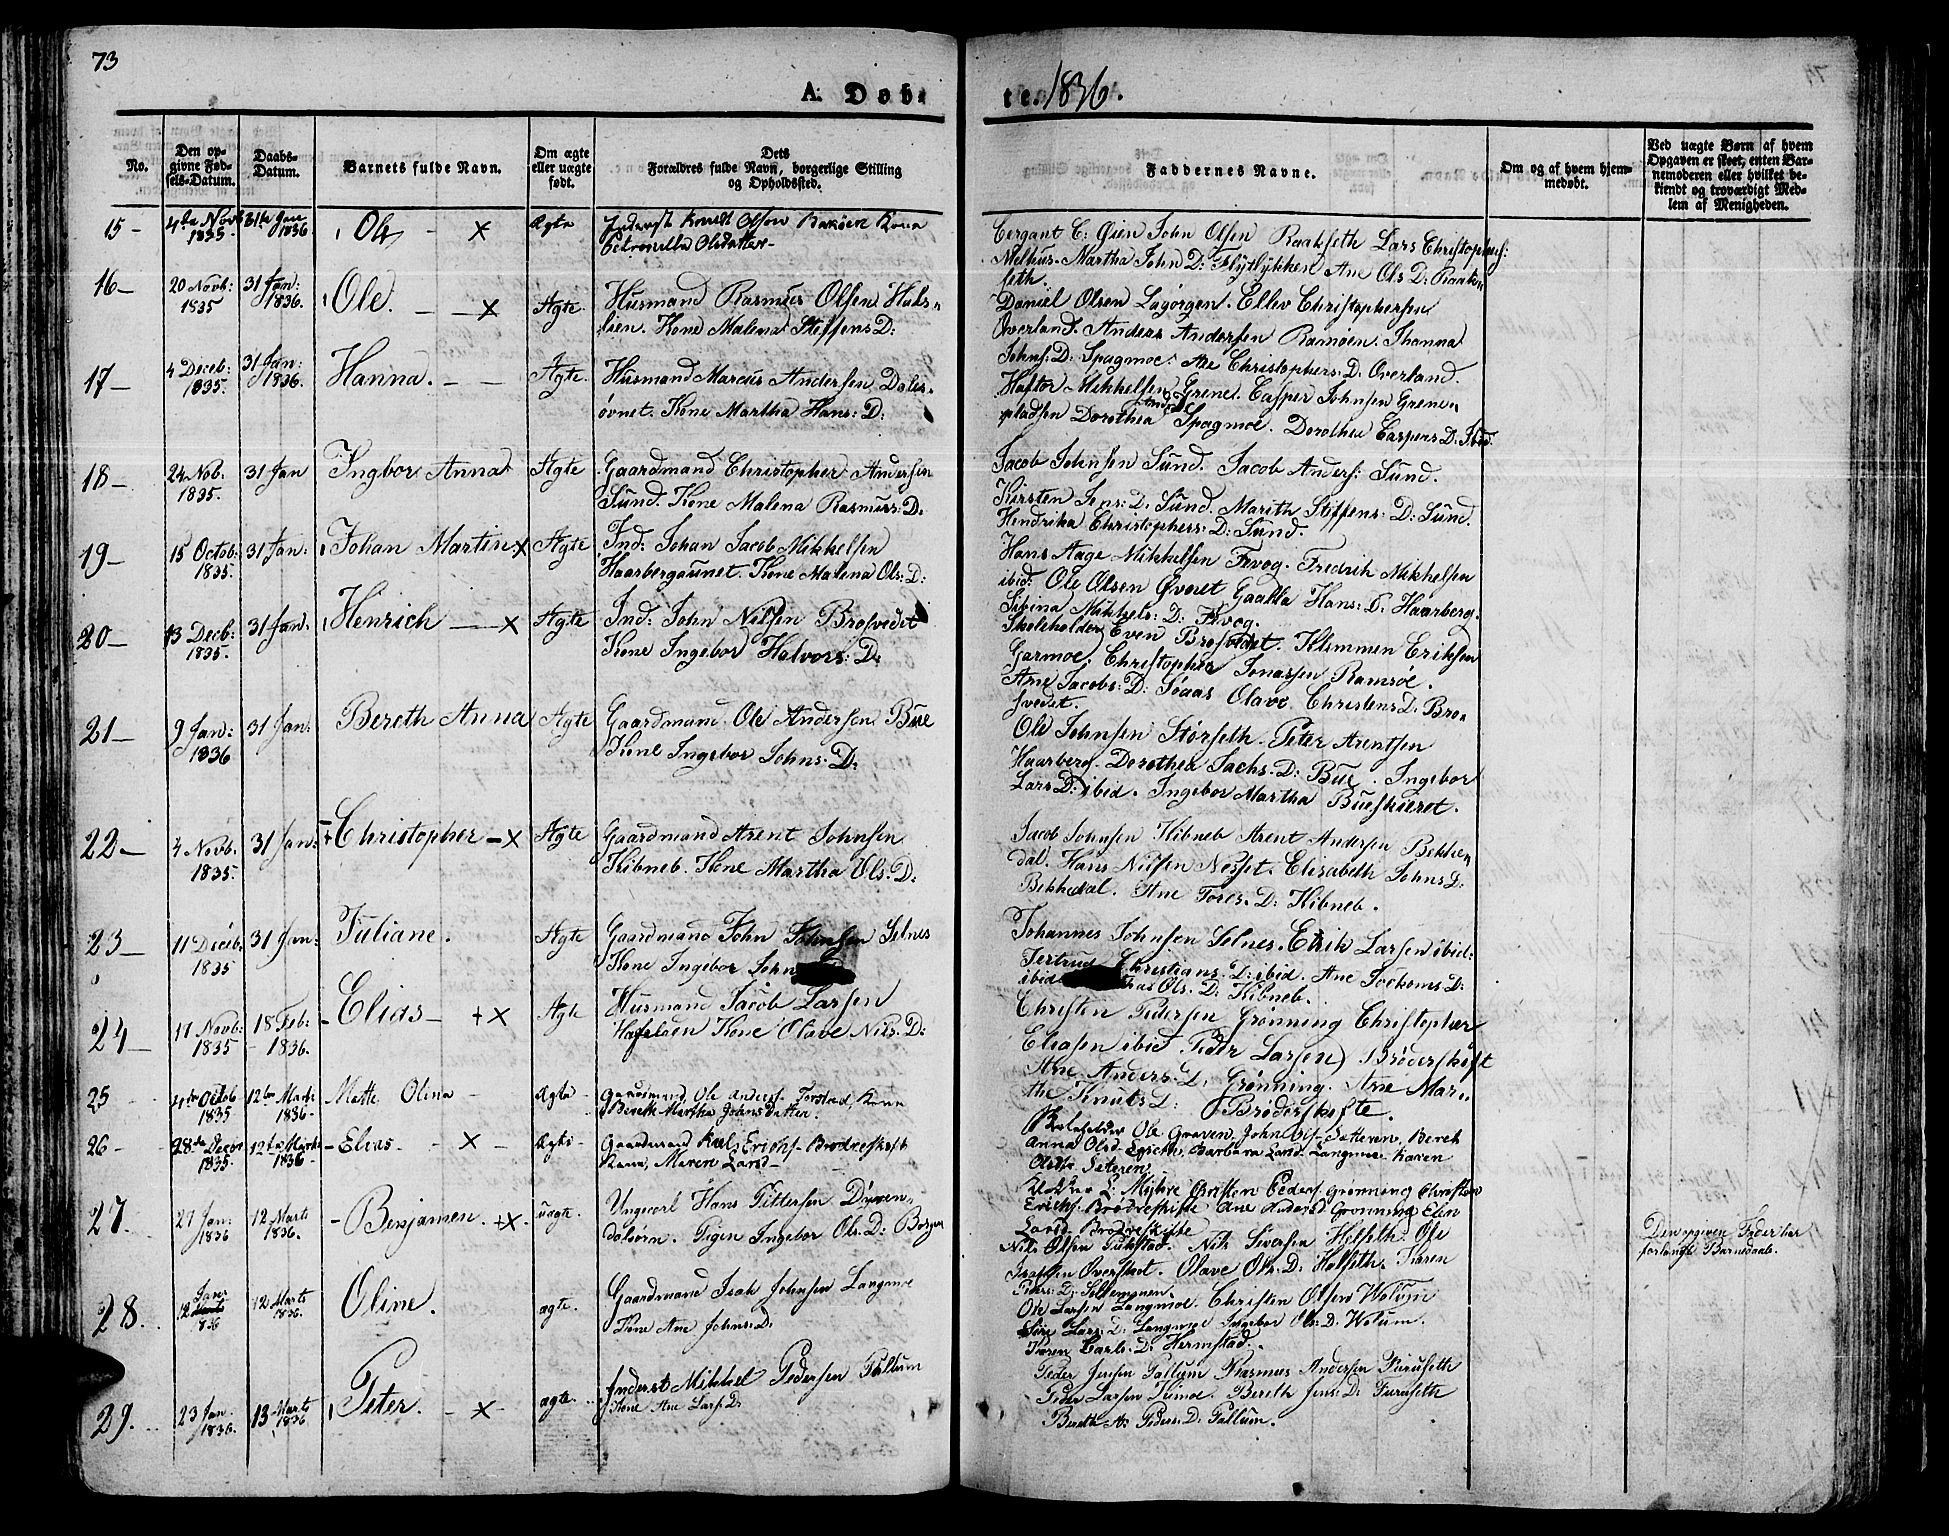 73
A. Døb-
te. 1836.
No.
Den op-
givne Fød-
sels-Datum.
Daabs-
Datum.
Barnets fulde Navn.
Om ægte
eller uægte
født.
Dets
Forældres fulde Navn, borgerlige Stilling
og Opholdssted.
Faddernes Navne.
Om og af hvem hjem-
medøbt.
Ved uægte Børn af hvem
Opgaven er skeet, enten Bar-
nemoderen eller hvilket be-
kiendt og troværdigt Med-
lem af Menigheden.
15 - 4de Novb 1835 31te Jan 1836 Ole - x Ægte Inderst Knudt Olsen Kone
Petronella Olsdatter -
John Olsen Raakseth Lars Christophers:
Melhus. Martha John D: Ane Ols D: Raak-
seth.
16 - 20 Novb: 1835 31 Jan: 1836. Ole. - - x Ægte. Husmand Rasmus Olsen Hals-
Kone Malena Steffens D:
Daniel Olsen Ellev Christophersen
Overland. Anders Andersen Ramsøen. Thanna
Johns: D: Spagmoe. Ane Christophers: D. Overland.
17 - 4 Deceb: 1835. 31 Jan: 1836. Hanna. - - Ægte. Husmand Marcus Andersen Dals-
øvnet. Kone Martha Hans: D:
Haftor Mikkelsen Grene. Casper Johnsen Grene-
pladsen Dorothea Spagmoe. Dorothea Caspers D:
18 - 24 Nob. 1835. 31 Jan Ingbor Anna Ægte Gaardmand Christopher Andersen
Sund. Kone Malena Rasmuss: D.
Jacob Johnsen Sund. Jacob Anders: Sund.
Kirsten Jens: D: Sund. Marith Steffens: D: Sund.
Hendrika Christophers: D: Sund.
19 - 15 Octob: 1835. 31 Jan: Johan Martin x Ægte Ind: Johan Jacob Mikkelsen
Haarbergaunet. Kone Malena Ols: D:
Hans Aage Mikkelsen Fevog. Fredrik Mikkelsen
ibid: Ole Olsen Hans: D. Haarberg.
Mikkels: D: Fevog.
20 - 13 Decb: 1835. 31 Jan: Henrich - x Ægte Ind: John Nilsen Brosvedet
Kone Ingebor Halvors: D:
Skoleholder Even Brosvedet. Klemmen Eriksen
Garmoe. Christopher Jonassen Ramsøe.
Ane Jacobs: D: Olave Christens D: Bro-
svedet.
21 - 9 Jan: 1836 31 Jan: Bereth Anna Ægte Gaardmand Ole Andersen Bue
Kone Ingebor Johns: D:
Ole Johnsen Størseth. Peter Arentsen
Haarberg. Dorothea D: Bue. Ingebor
Lars D: ibid. Ingebor Martha Bueskieret.
22 - 4 Novb. 1835. 31 Jan: Christopher - x Ægte Gaardmand Arent Johnsen
Kibneb. Kone Martha Ols: D:
Jacob Johnsen Kibneb Arent Andersen Bekken
dal. Hans Nilsen Nesset. Elisabeth Johns D:
Bekkedal. Ane Tores. D: Kibneb.
23 - 11 Deceb. 1835 31 Jan: Juliane. Ægte Gaardmand John Johnsen Selnes
Kone Ingebor John
Johannes Johnsen Selnes. Erik Larsen ibid:
Jertrud Christians. D: ibid. Ane Jockoms: D:
ibid Ols. D: Kibneb.
24 - 17 Novb: 1835 18 Feb: 1836. Elias - + x Ægte Husmand Jacob Larsen
Kone Olave Nils. D:
Christen Pedersen Grønning Christopher
Eliasen ibid Peder Larsen Brøderskift
Ane Anders. D. Grønning. Ane Mari-
Knuts D: Brøderskifte.
25 4de Octob 1835 12te Marts 1836 - Mette Olina - Ægte Gaardmand Ole Anders. Torstad, Kone
Bereth Martha Johnsdatter.
Skoleholder Ole Graven, John Sæteren, Beret
Anna Olsd Barbara Larsd. Langmoe Karen
Olsdr Seteren
26 - 28de Decbr 1835. 12te Marts 1836 - Elias - - x - Ægte - Gaardmand Erichs. Brødreskift
Kone, Maren Larsd -
Myhre Christen Peders. Grønning Christen
Erichs. Brødreskifte Ane Andersd Grønning Elen
Larsd. Brødreskifte
27. 21 Jan: 1836 12 Marts 1836. - Benjamen. + x. uægte. Ungearl Hans Pettersen Dyren-
dalsørn. Pigen Ingebor Ols: D:
Nils Olsen Nils Siversen Helseth. Ole
Overstad. Olave Ols. D: Helseth. Karen
Peders: D.
Den opgiven Fader har
forlangt Barnedaab.
28. 12 Janr 1836 12 Marts 1836. Oline. ægte. Gaardmand Isak Johnsen Langmoe
Kone Ane Johns: D.
Ole Larsen Langmoe. Christen Olsen Wolum
Lars: D. Langmoe Ingebor Ols. D. Wolum.
Karen Carls. D. Hermstad.
29. 23 Jan. 1836. 13 Marts 1836 Peter. - x - ægte. Inderst Mikkel Pedersen Tallum
Kone Ane Lars. D.
Peder Jensen Tallum Rasmus Andersen Furuseth
Peder Larsen Bereth Jens: D: Furuseth
Bereth A. Peders: D: Tallum.